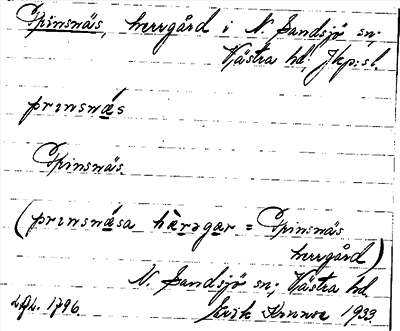 Prinsnäs, herrgård i N. Sandsjö sn;
Västra hd; Jkp:s l.
prɪnsnä́s
Prinsnäs
(prɪnsnä́sa hæ̀rəgar = Prinsnäs
herrgård)
N. Sandsjö sn; Västra hd.
1796. Erik 1933